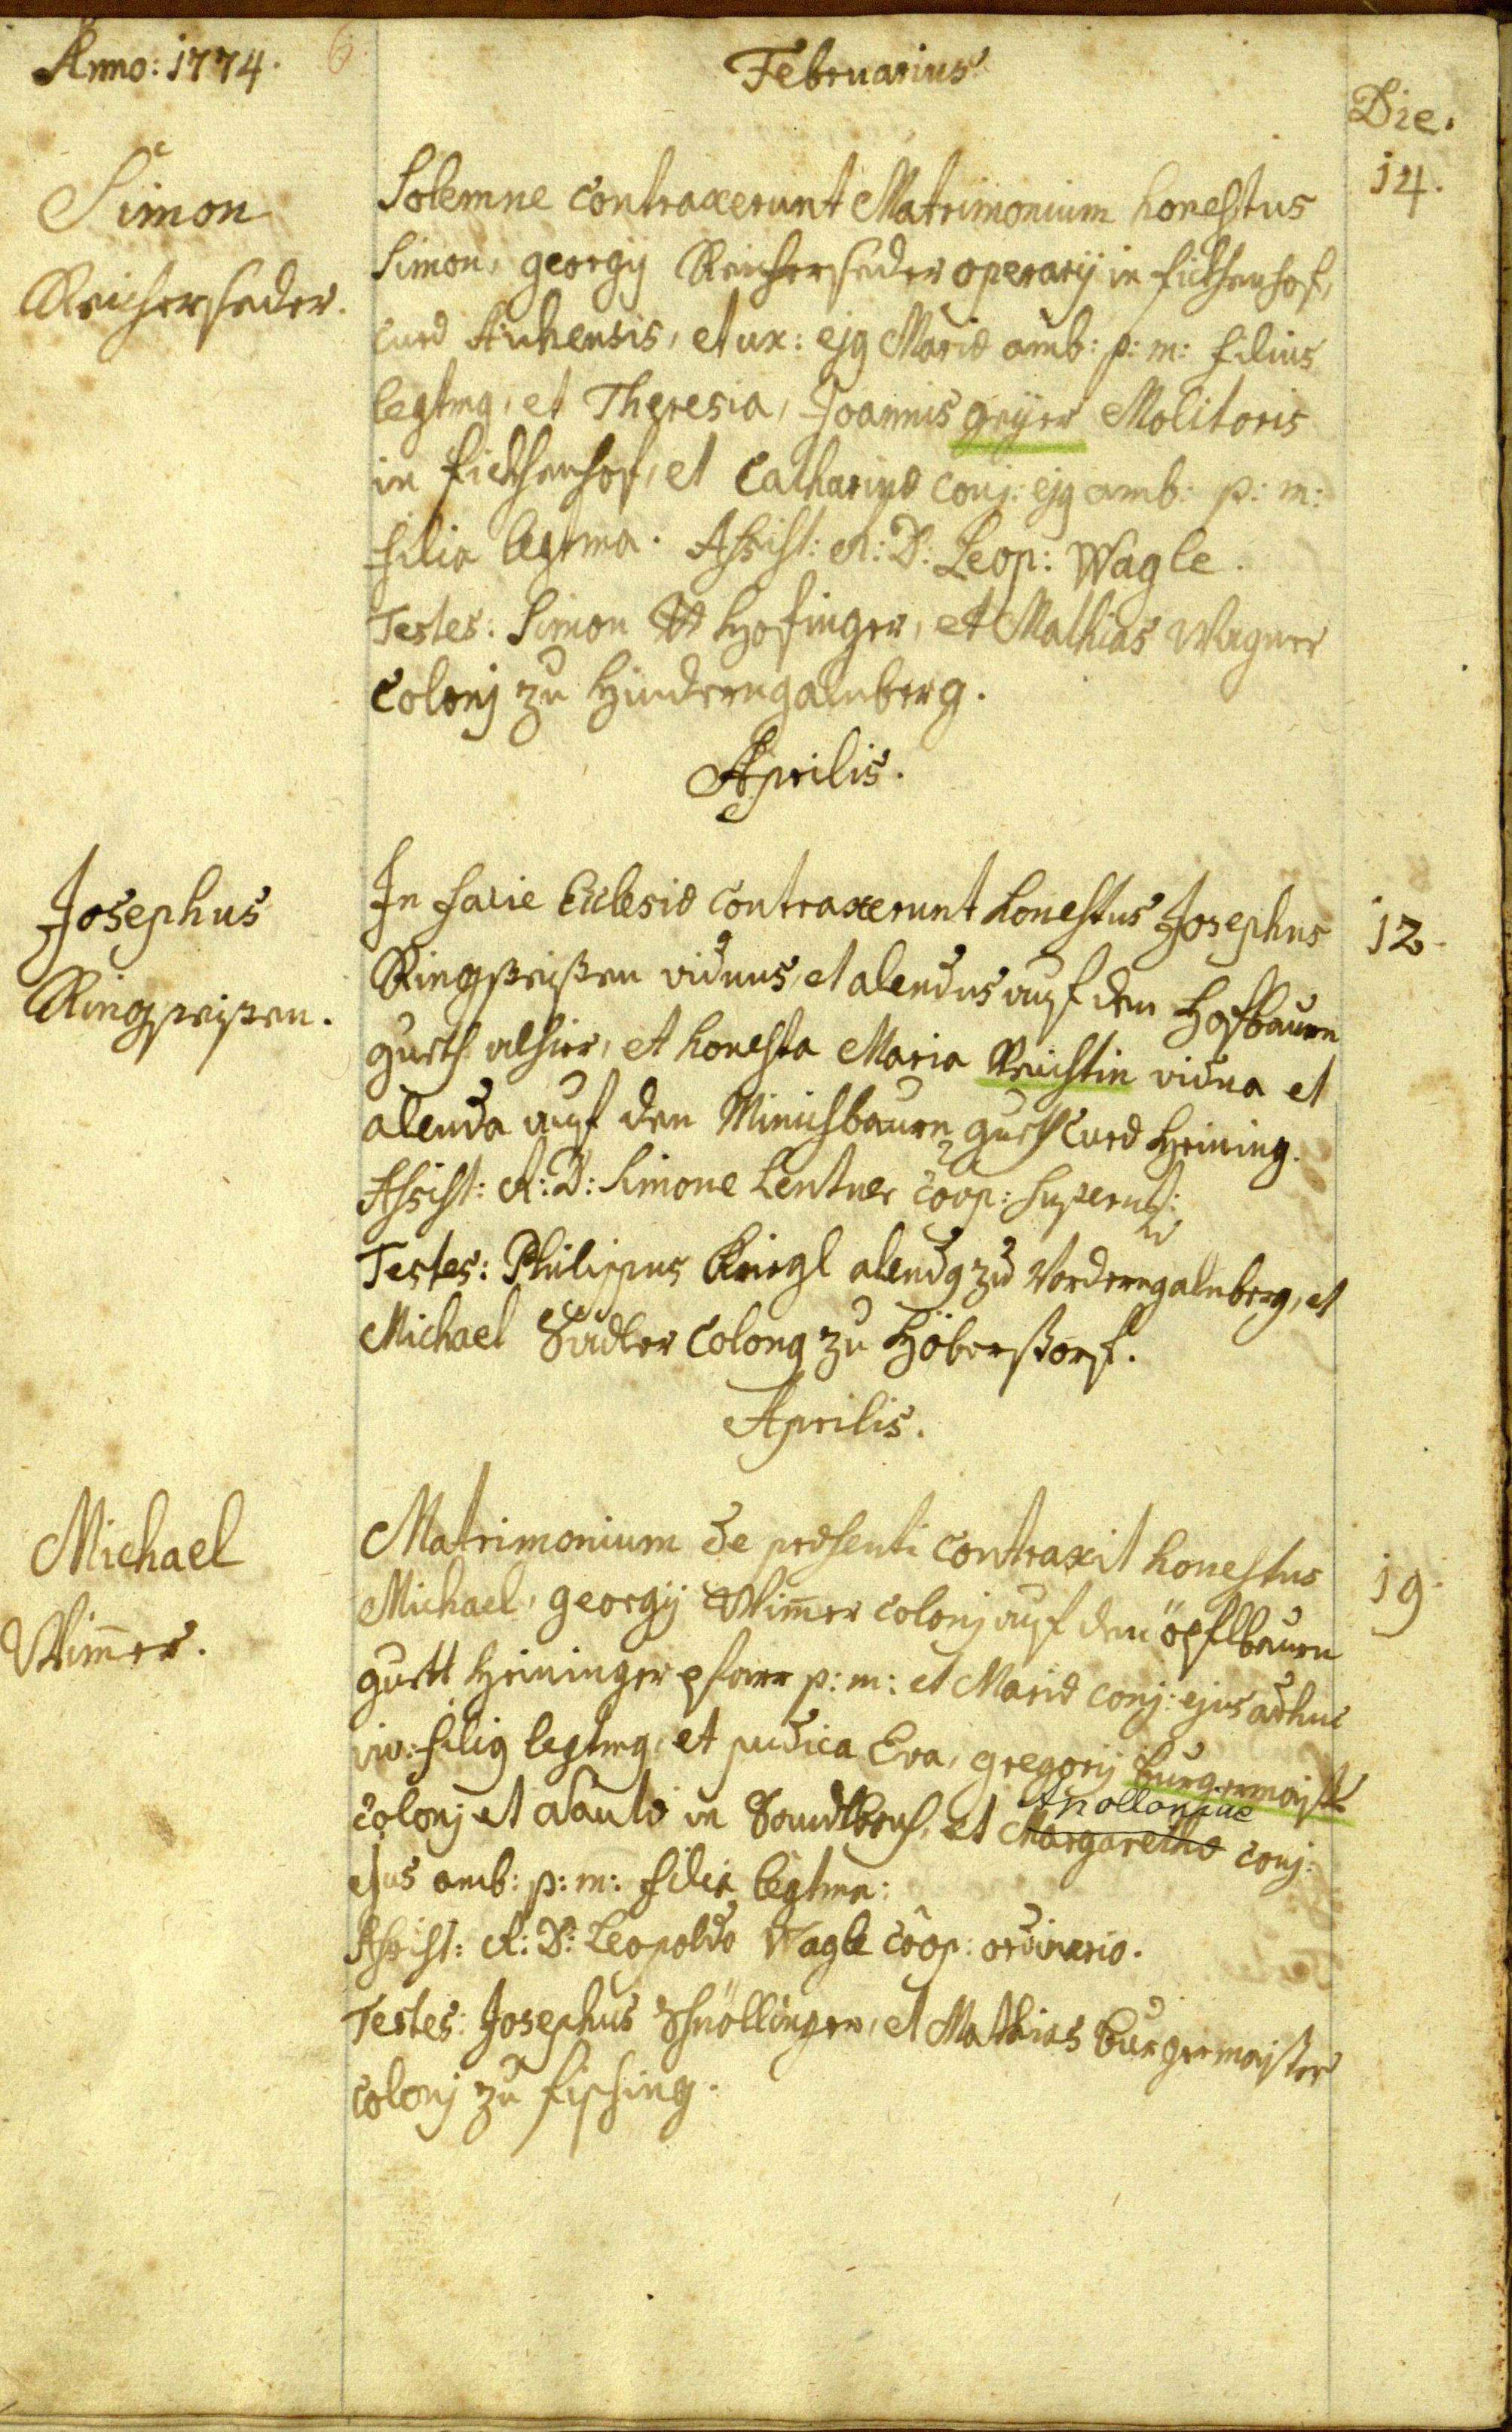 Anno: 1774. 6.
Februarius
Die.
Simon
Reicherseder.
14.
Solemne contraxerunt Matrimonium honestus
Simon, georgÿ Reicherseder operarÿ in
curæ Aichensis, et ux: ejg Mariæ amb: p: m: filius
legtmg, et Theresia, Joannis geÿer Molitoris
in et Catharinæ conj: ejg amb: p: m:
filia legtma. Assist: A: R: D: Leop: Wagle.
Testes: Simon Hofinger, et Mathias Wagner
Colonj zu Hinderngalnberg.
Aprilis.
Josephus
Ringseisen.
12.
In facie Ecclesiæ contraxerunt honestus Josephus
Ringseisen viduus, et alendus auf den Hofbaurn
gueth alhier, et honesta Maria Reichstin vidua et
alenda auf den Minichbaurn gueth curæ Heining.
Assist: A: R: D: Simone Lentner coop: supern:
Testes: Philippus Kriegl alendg zu Vorderngalnberg, et
Michael Sadler Colong zu Höberstorf.
Aprilis.
Michael
Wim̄er.
19.
Matrimonium de præsenti contraxit honestus
Michael, georgÿ Wim̄er colonj auf den öpflbaurn
guett Heininger pfarr p: m: et Mariæ conj: ejus adhuc
viv: filig legtmg, et pudica Eva, gregorij Burgermaister
colonj et in et Apolloniae Margarethæ conj:
ejus amb: p: m: filia legtma:
Assist: A: R: D: Leopoldo Wagle coop: ordinario.
Testes: Josephus Schnöllinger, et Mathias Burgermaister
colonj zu fisching.